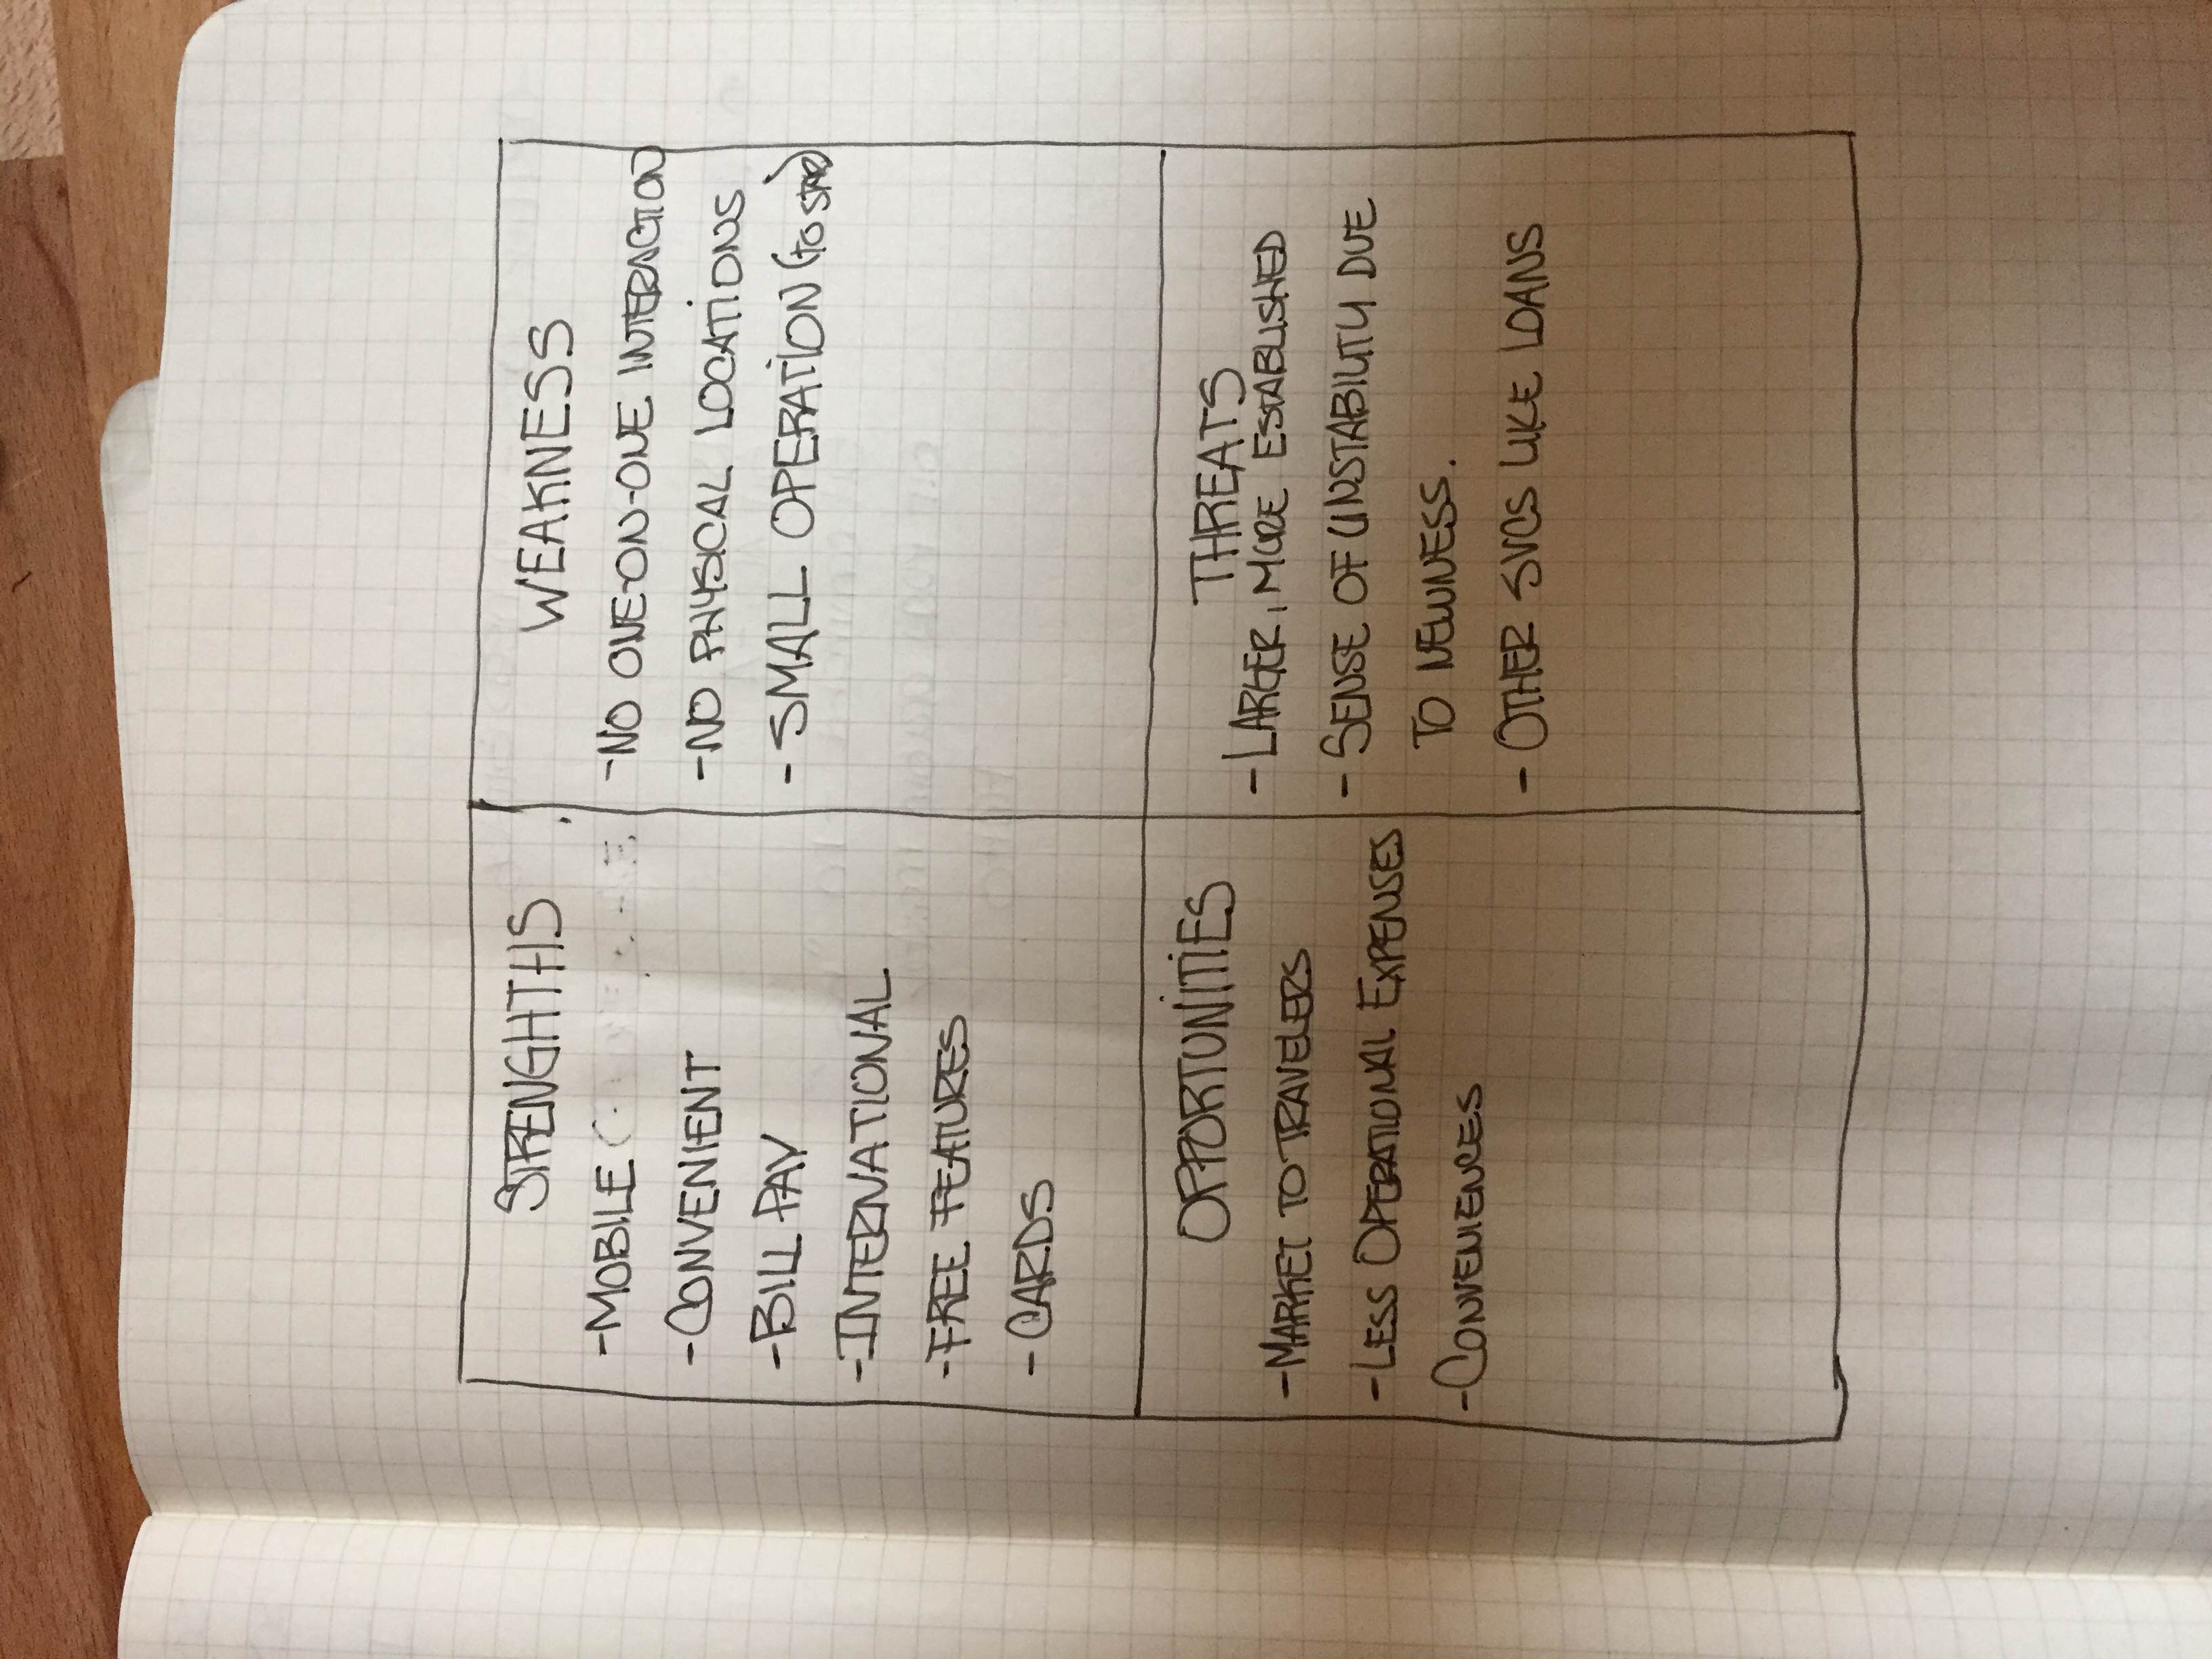 STRENGHTHS
-MOBILE (
-CONVENIENT
-BILL PAY
-INTERNATIONAL
-FREE FEATURES
- CARDS
WEAKNESS
-NO ONE-ON-ONE INTERACTION
-NO PHYSICAL LOCATIONS
- SMALL OPERATION (TO START)
OPPORTUNITIES
-MARKET TO TRAVELERS
-LESS OPERATIONAL EXPENSES
-CONVENIENCES
THREATS
- LARGER, MORE ESTABLISHED
- SENSE OF UNSTABILITY DUE
TO NEWNESS.
- OTHER SVCS LIKE LOANS